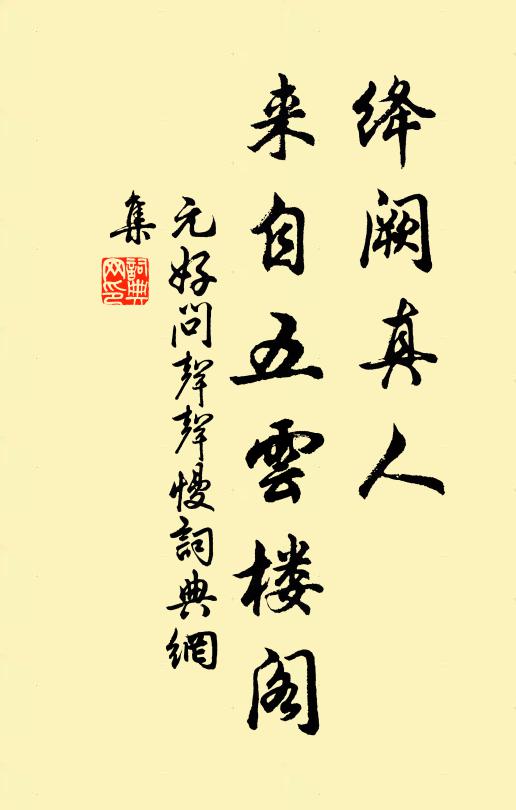 绛阙真人
来自五雲楼阁
元好问聲聲慢詞典網
集
詞典网印